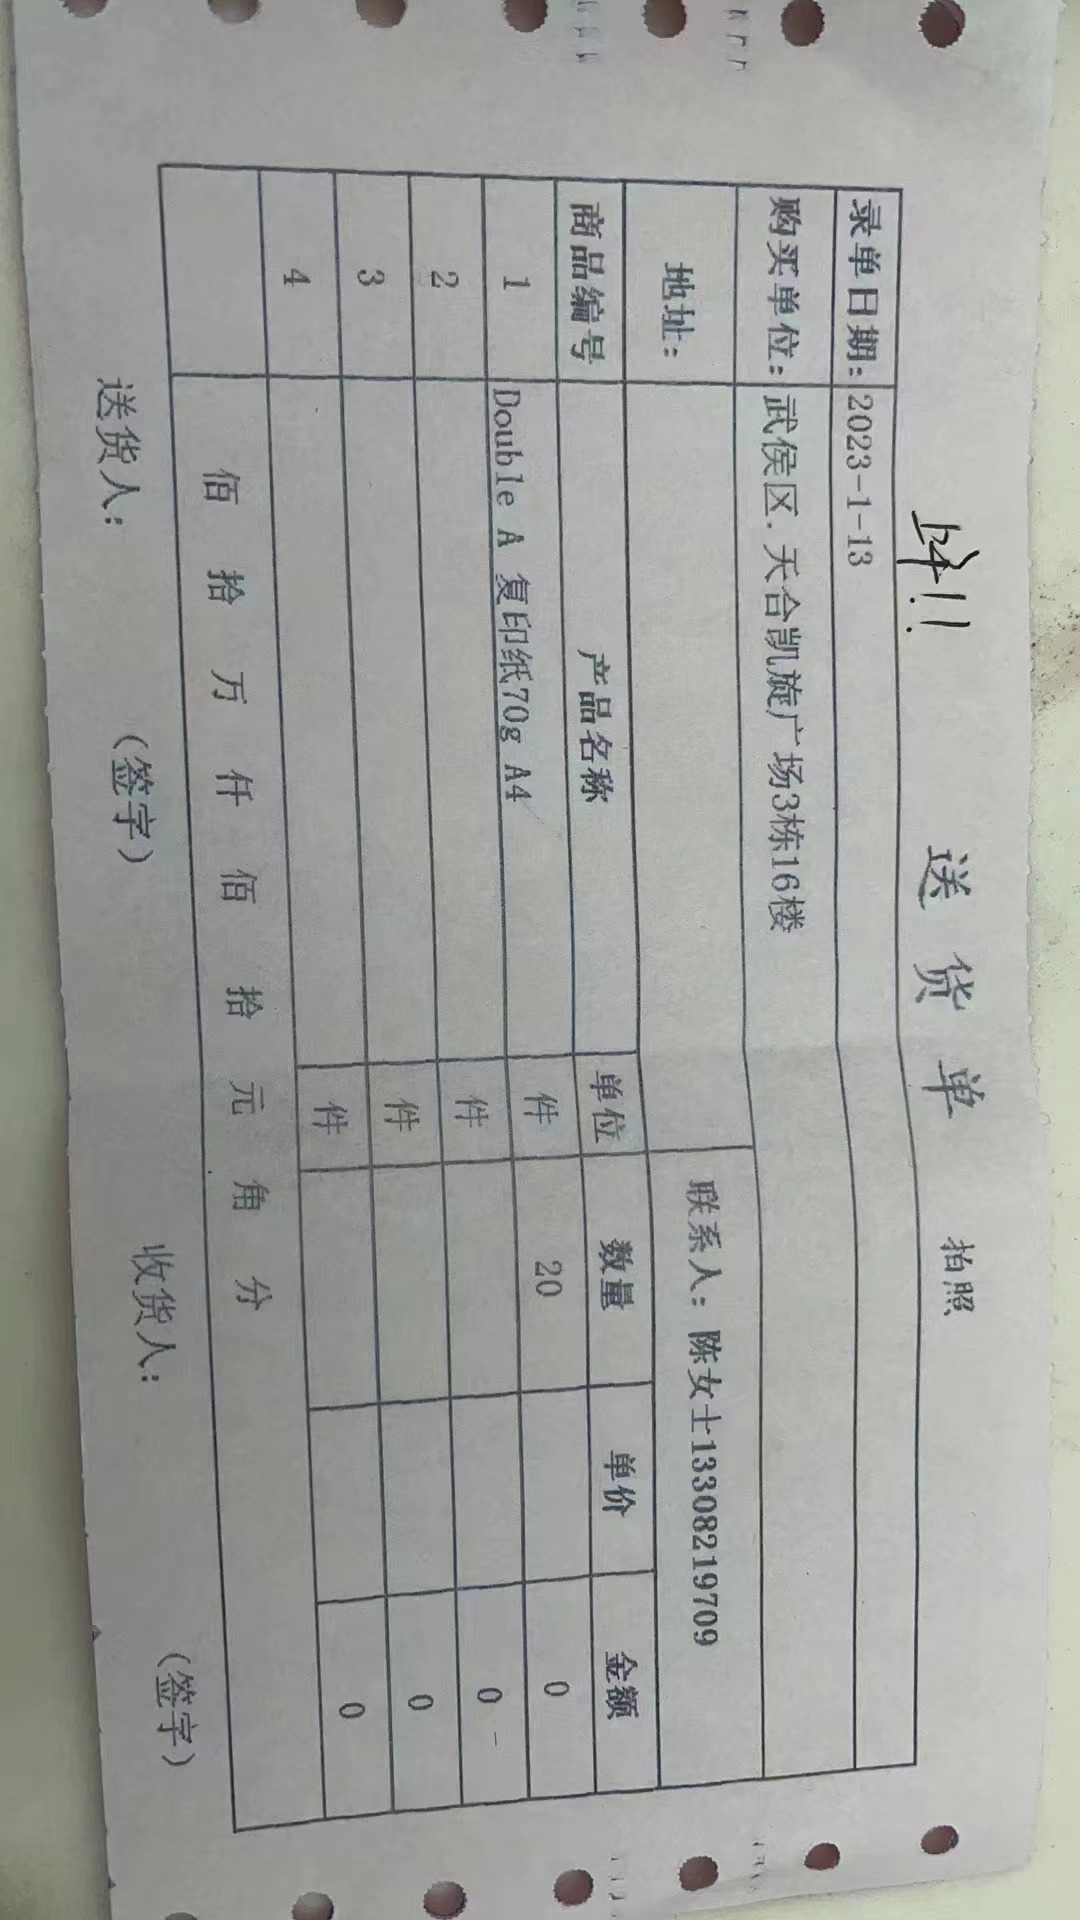 上午!!
送货单 拍照
录单日期: 2023-1-13
购买单位: 武侯区.天合凯旋广场3栋16楼
地址: 联系人: 陈女士13308219709
商品编号 产品名称 单位 数量 单价 金额
1 Double A 复印纸70g A4 件 20 0
2 件 0
3 件 0
4 件 0
佰 拾 万 仟 佰 拾 元 角 分
送货人: (签字) 收货人: (签字)